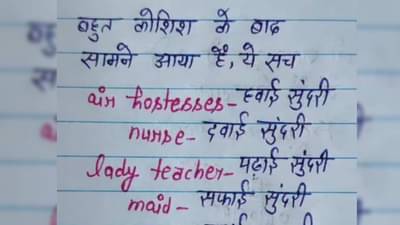 बहुत कोशिश के बाद
सामने आया हैं, ये सच
air hostesses- हवाई सुंदरी
nurse- दवाई सुंदरी
lady teacher- पढ़ाई सुंदरी
maid- सफाई सुंदरी